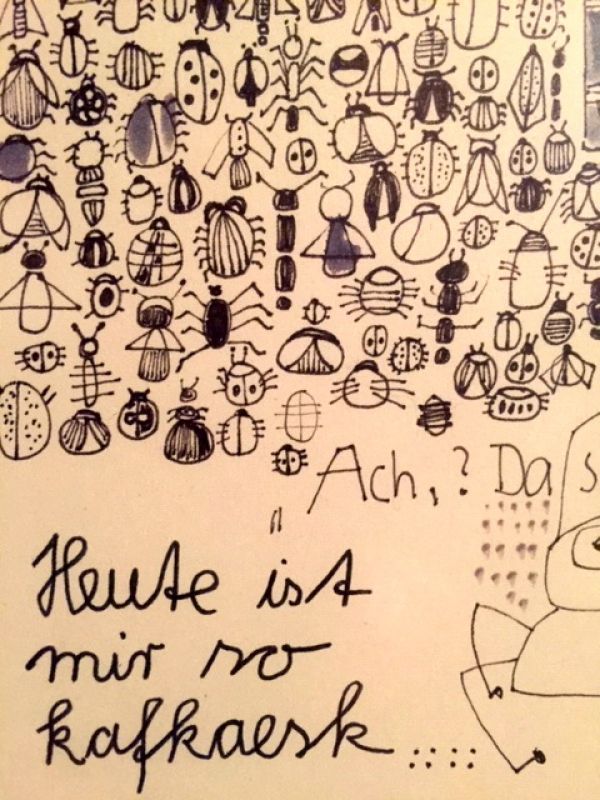 „Ach,? Da s
"
Heute ist
mir so
kafkaesk......